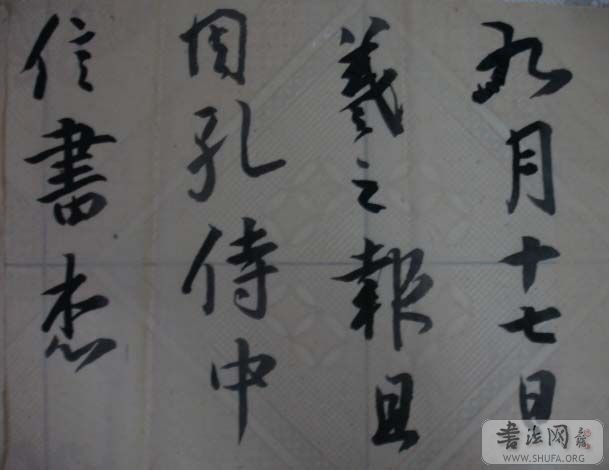 九月十七日
羲之報且
因孔侍中
信書想
书法网
WWW.SHUFA.ORG